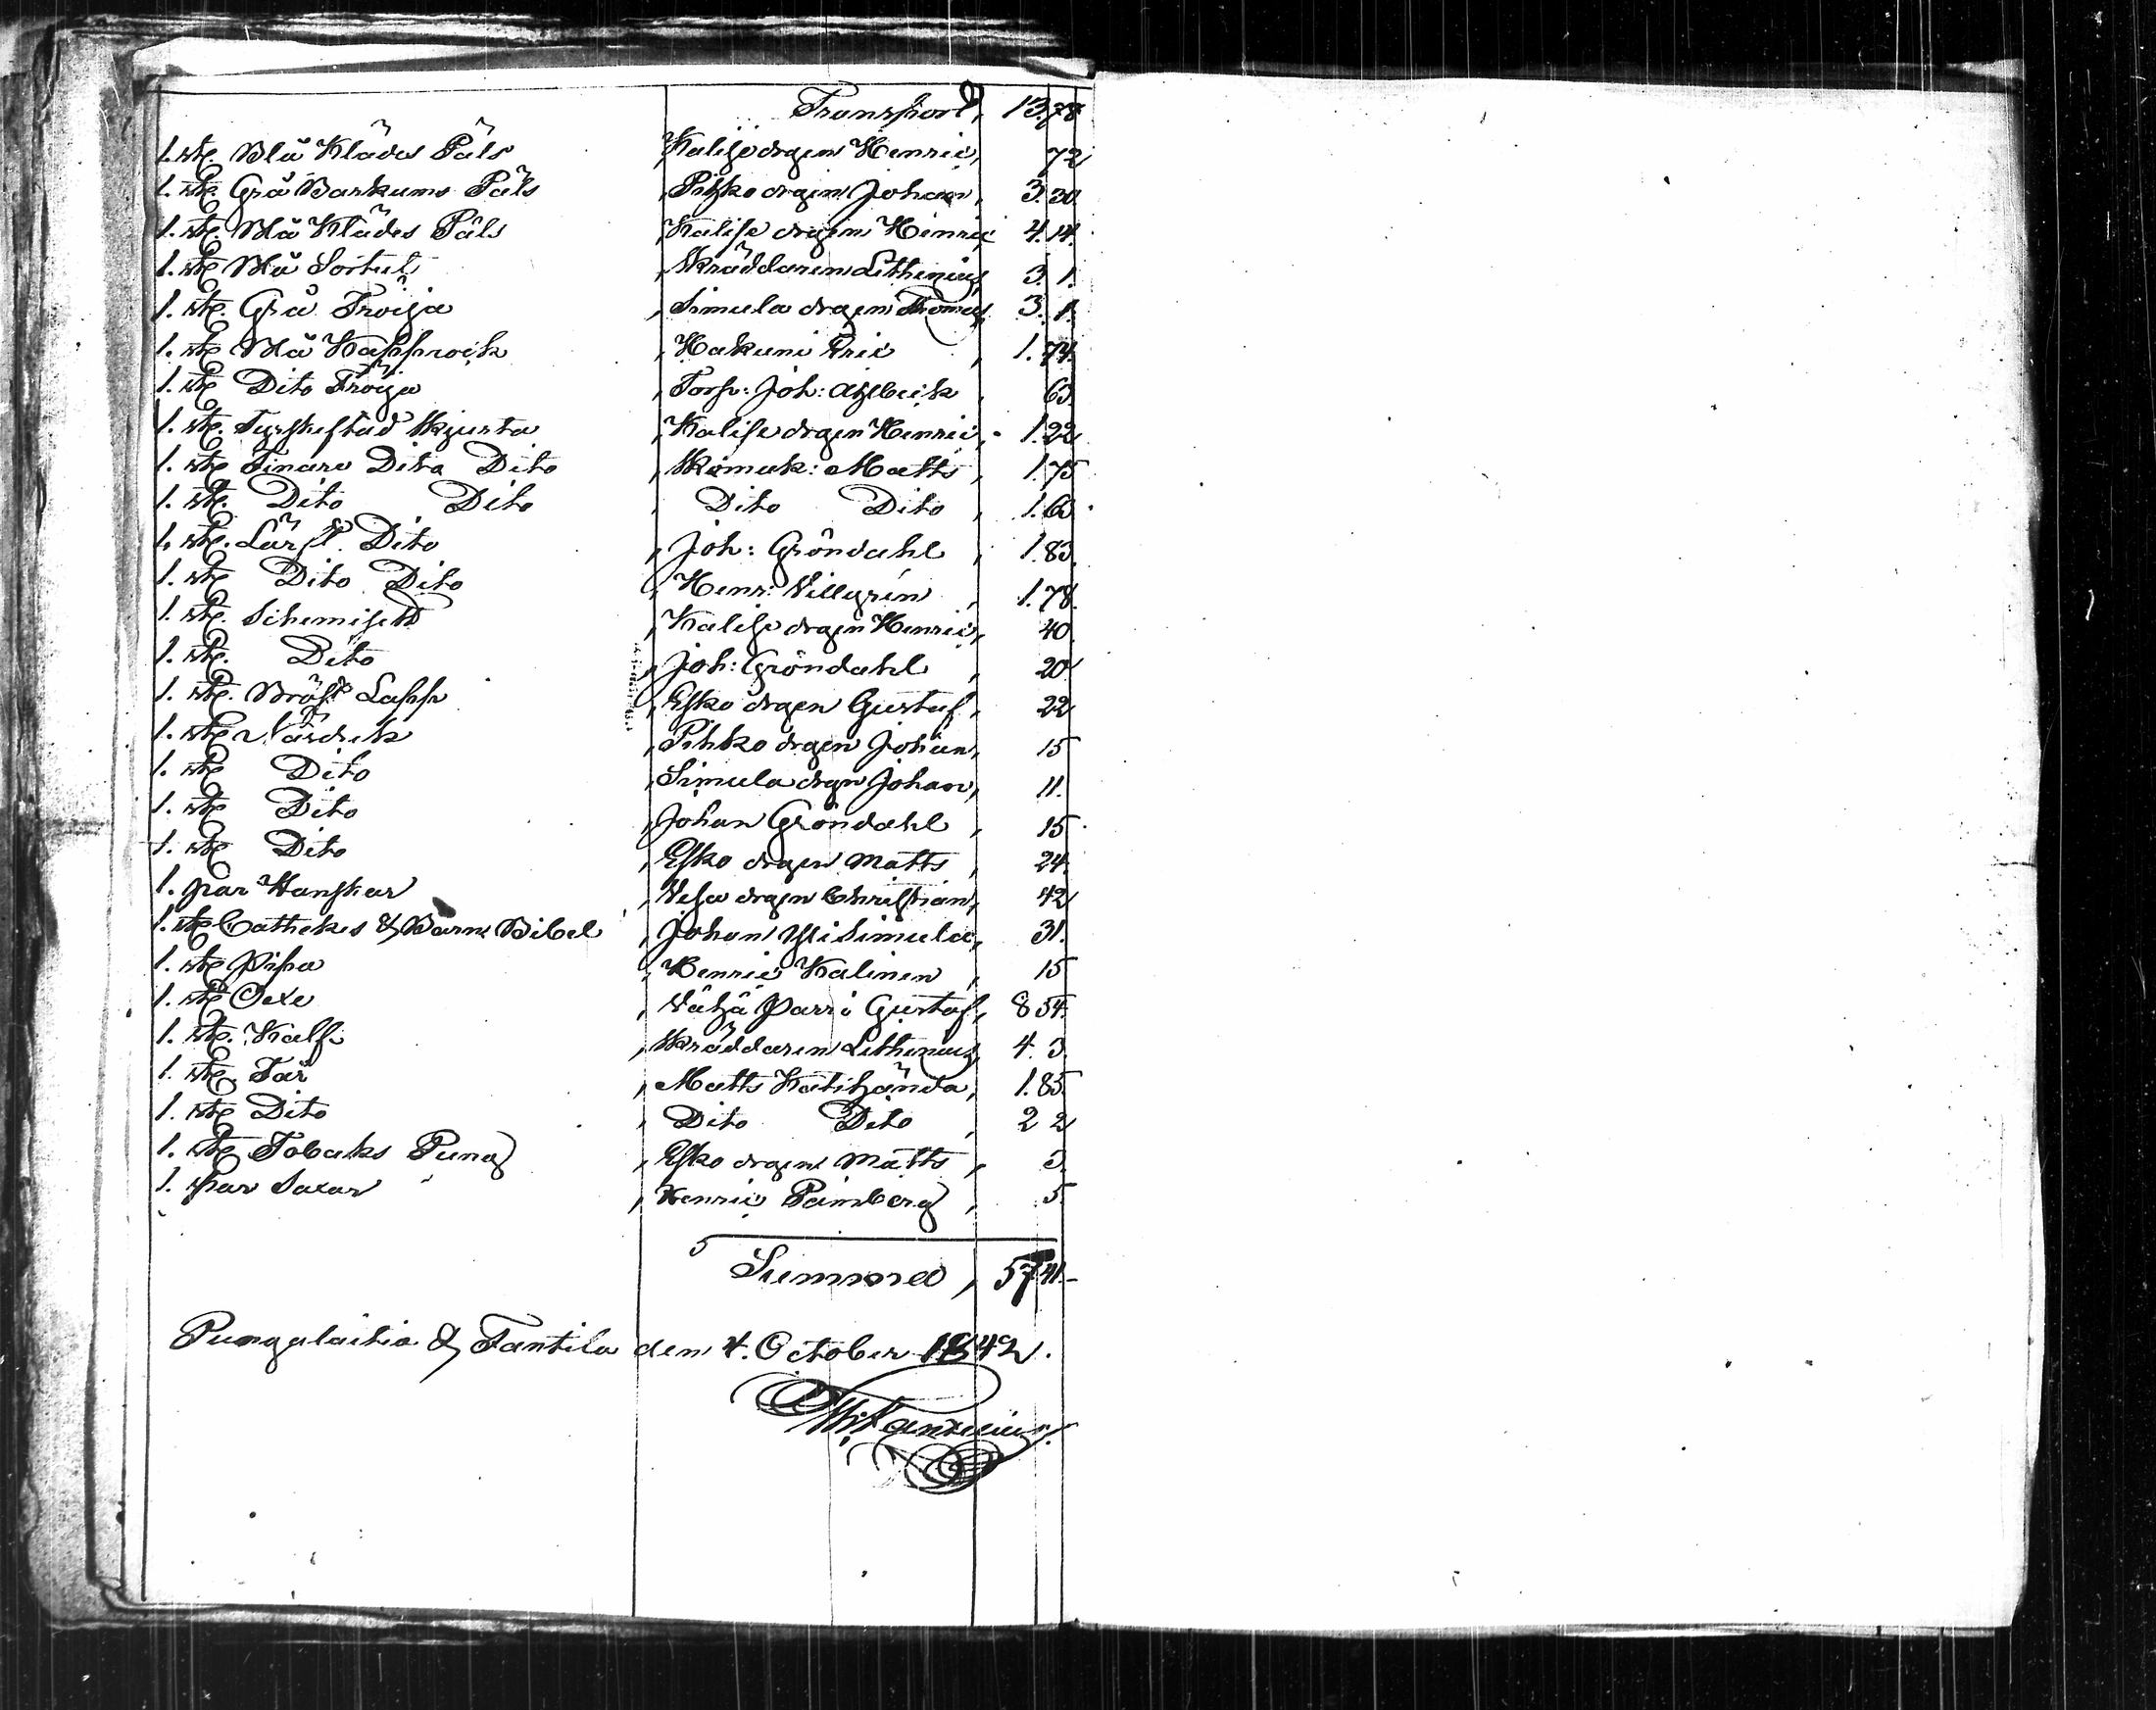 Transport, 13.78
1. st. Blå Klädes Päls, Kalise drgen Henric, 72
1. st. Grå Barkums Päls, Pihko drgen Johan, 3.30.
1. st. Blå Klädes Päls, Kalise drgen Henric 4.14.
1. st. Blå Sortut, Skräddaren Lithenius, 3.1.
1. st. Grå Tröija, Simula drgen Thomas, 3.1.
1. st. Blå Kapprock, Hakuni Eric, 1.74.
1. st. Dito Tröija, Torp: Joh: Ahlbeck, 63.
1. st. Skjorta, Kalise drgen Henric, 1.22
1. st. Finare Dito Dito, Matts, 1.75
1. st. Dito Dito, Dito Dito, 1.60
1. st. Lärft Dito, Joh: Gröndahl, 1.83.
1. st. Dito Dito, Henr: Villgren, 1.78.
1. st. Schemisett, Kalise drgen Henric, 40.
1. st. Dito, Joh: Gröndahl, 20
1. st. Bröst Lapp, Esko drgen Gustaf, 22
1. st. Näsduk, Pihko drgen Johan, 15
1. st. Dito, Simula drgn Johan, 11.
1. st. Dito, Johan Gröndahl, 15
1. st. Dito, Esko drgen Matts, 24.
1. par Hanskar, Vesa drgen Christian, 42
1. st. Cathekes & Barne Bibel, Johan Yli Simula, 31.
1. st. Pipa, Henric Kalinen, 15
1. st. Oxe, Vähä Parri Gustaf, 8 54.
1. st. Kalf, Skräddaren Lithenius, 4.3.
1. st. Får, Matts Katihända, 1.85.
1. st. Dito, Dito Dito, 2 2
1. st. Tobaks Pung, Esko drgen Matts, 5.
1. par Saxar, Henric Palmberg, 5
Summa, 57.41.-
Pungalaitio & Tantila den 4. October 1842.